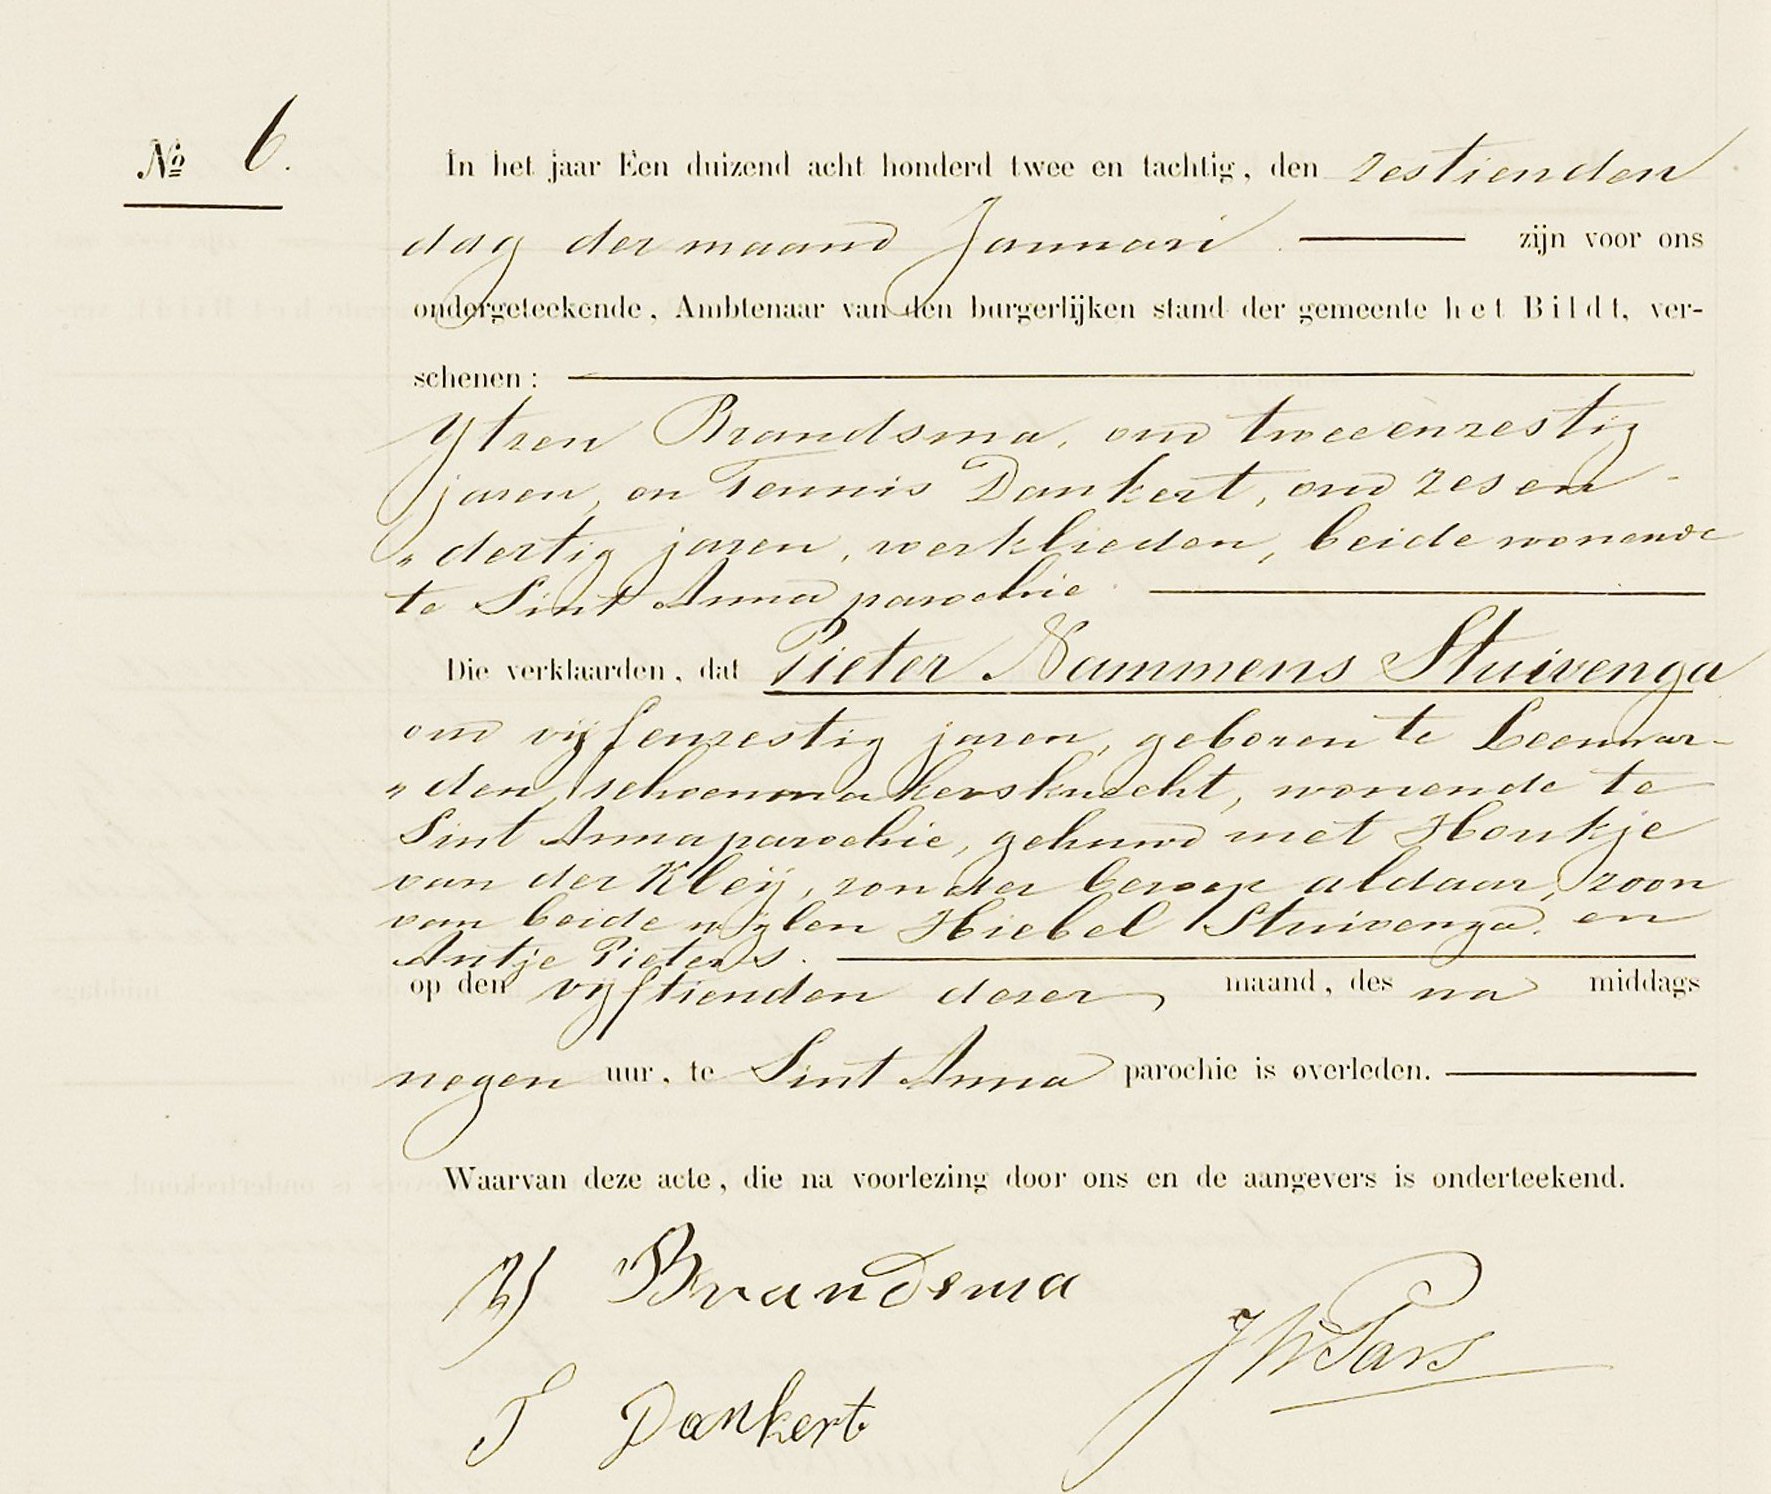 № 6.
In het jaar Een duizend acht honderd twee en tachtig, den zestienden
dag der maand Januari zijn voor ons
ondergeteekende, Ambtenaar van den burgerlijken stand der gemeente het Bildt, ver-
schenen:
Ytzen Brandsma, oud tweeënzestig
jaren, en Teunis Dankert, oud zesen-
„dertig jaren, werklieden, beide wonende
te Sint Anna parochie
Die verklaarden, dat Pieter Nammens Stuivenga
oud vijfenzestig jaren, geboren te Leeuwar-
„den, schoenmakersknecht, wonende te
Sint Annaparochie, gehuwd met Houkje
van der Kleij, zonder beroep aldaar, zoon
van beide wijlen Hiebel Stuivenga en
Antje Pieters.
op den vijftienden dezer maand, des na middags
negen uur, te Sint Anna parochie is overleden.
Waarvan deze acte, die na voorlezing door ons en de aangevers is onderteekend.
Y Brandsma
JW Pars
T Dankert